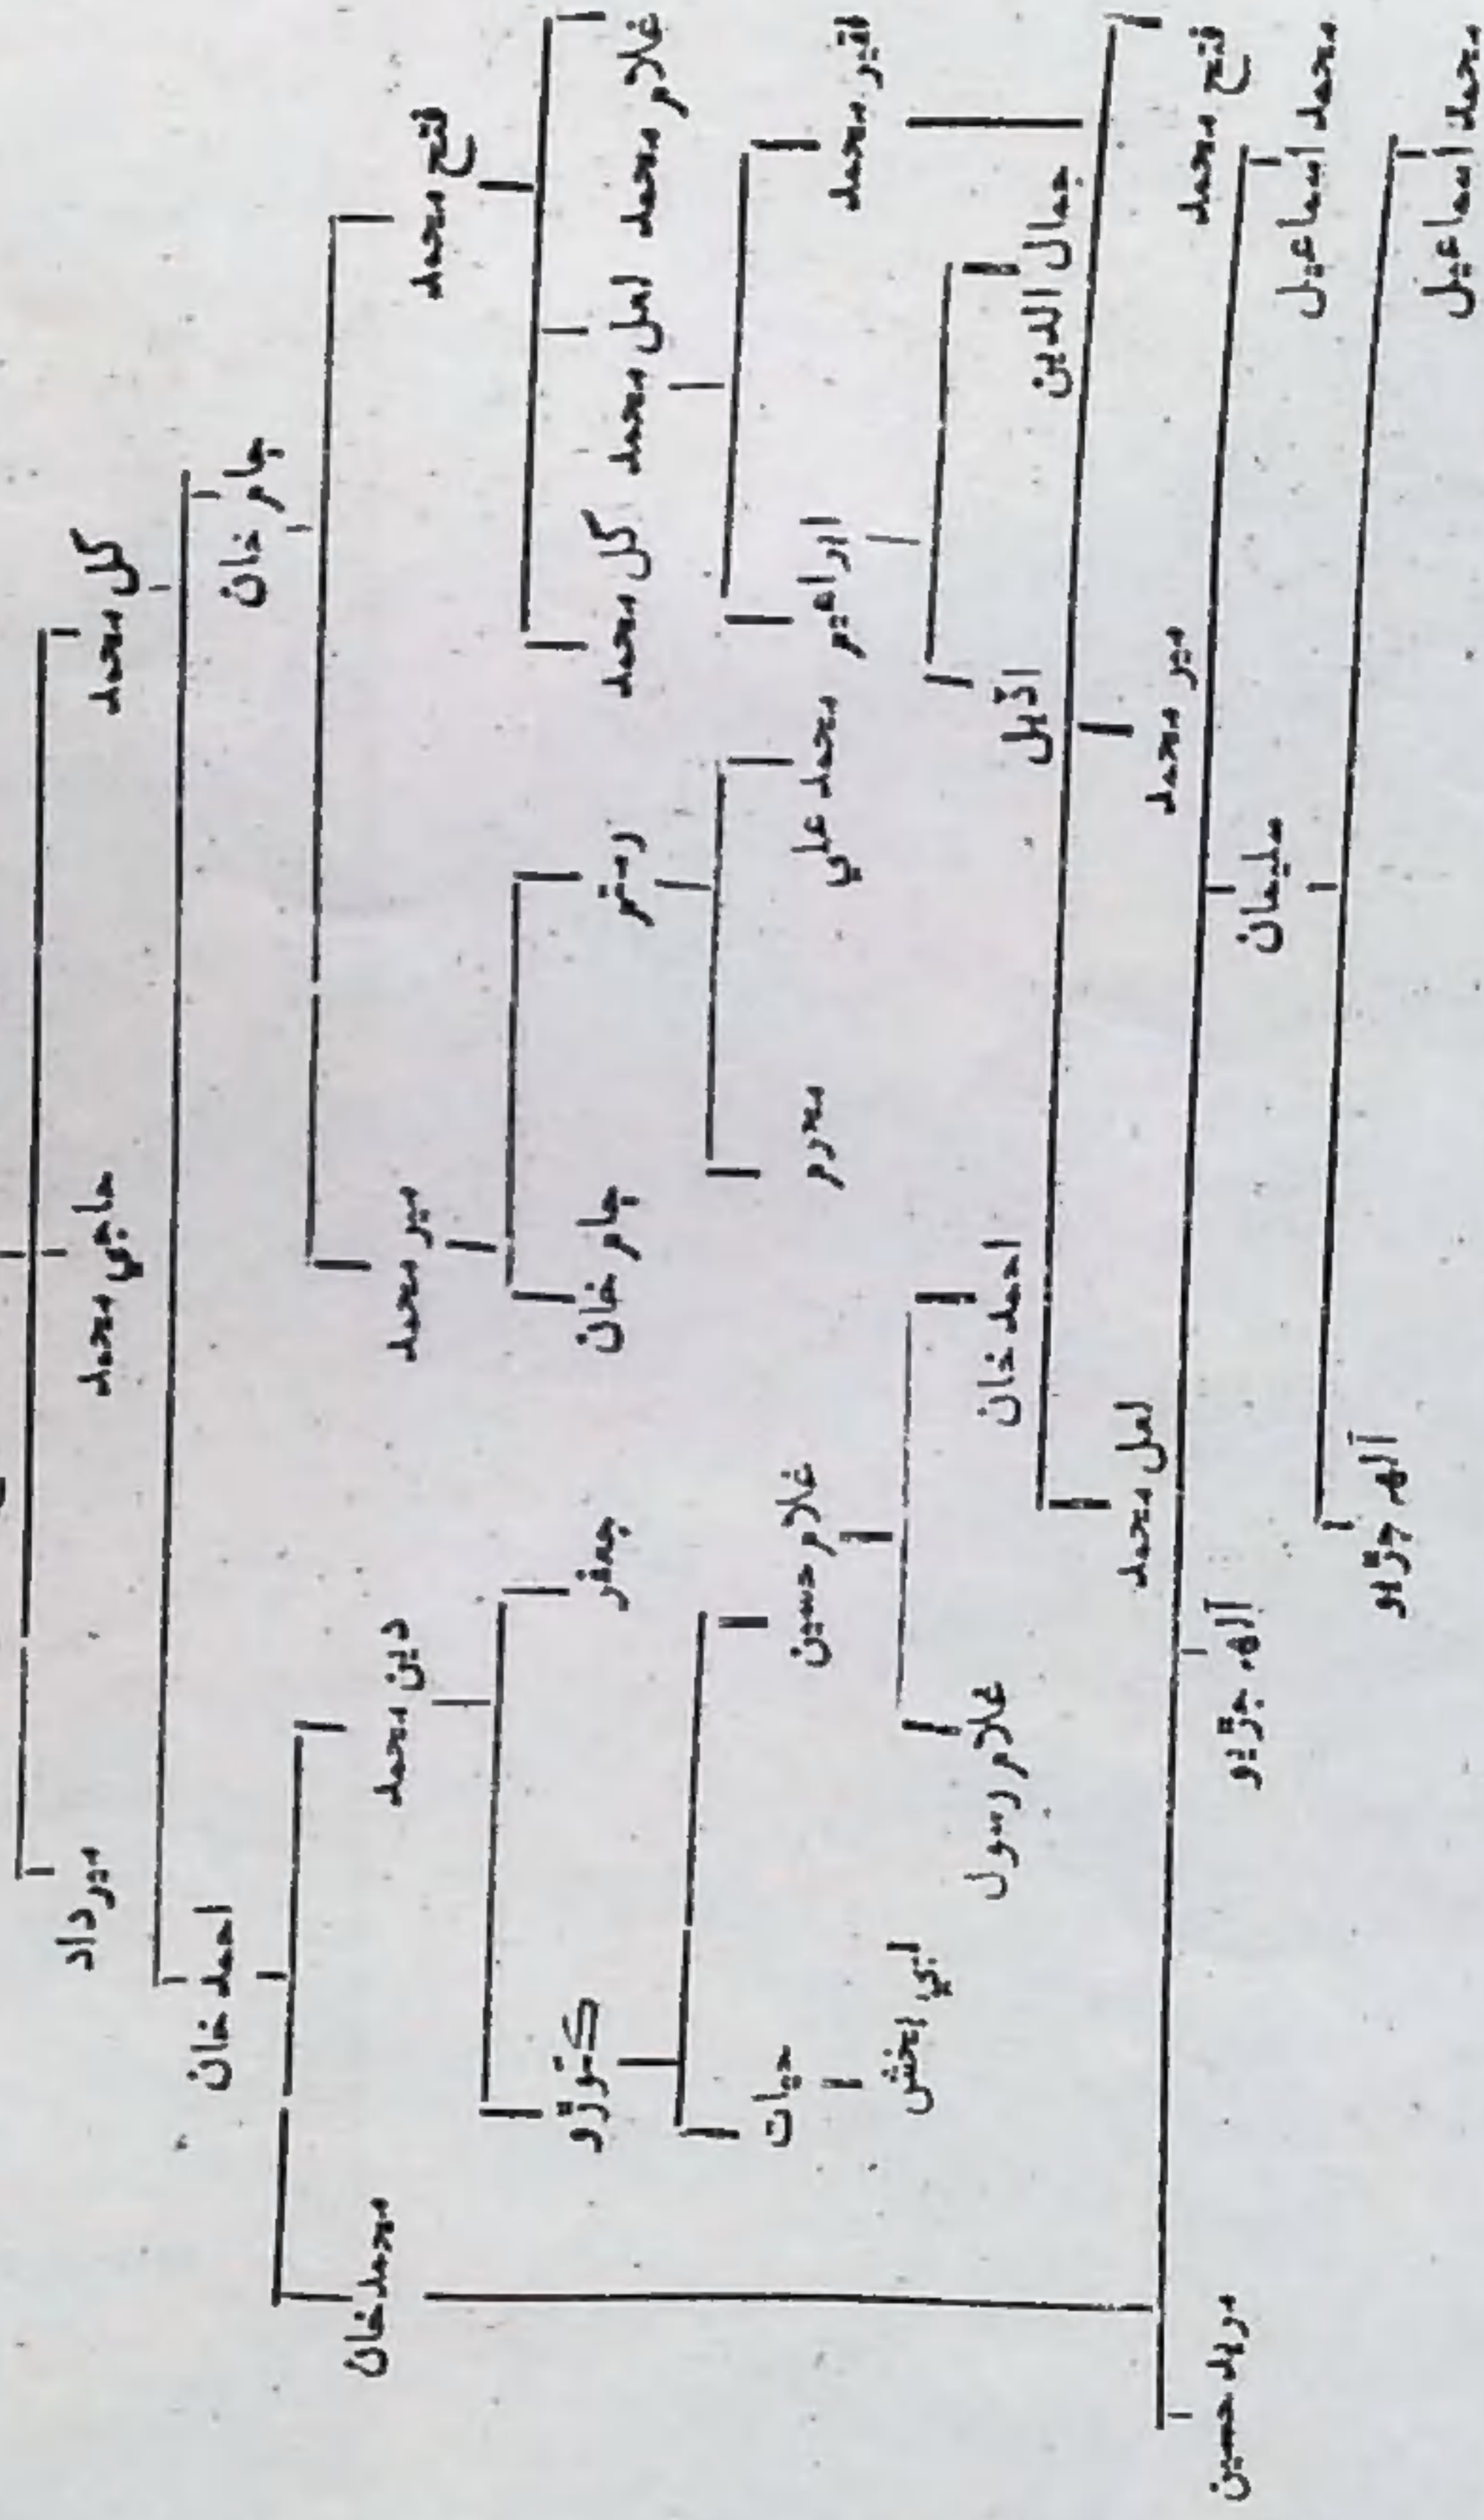 مير داد حاجي محمد گل محمد
احمد خان ڄام خان
محمد خان دين محمد مير محمد فتح محمد
ڪنورڙو جعفر ڄام خان رستم گل محمد لعل محمد غلام محمد
حيات غلام حسين محرم محمد علي ابراهيم فقير محمد
نبي بخش غلام رسول احمد خان اڏيل جمال الدين
لعل محمد مير محمد فتح محمد
مريد حسين الهہ جڙيو سليمان محمد اسماعيل
الهہ جڙيو محمد اسماعيل